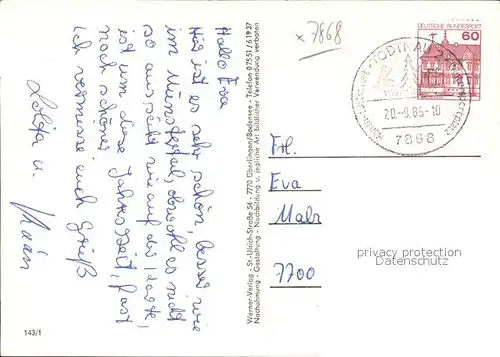 Hallo Eva
Hier ist es sehr schön, besser wie
im Münstertal, obwohl es nicht
so aussieht wie auf der Karte,
ist um diese Jahreszeit, fast
noch schöner
Ich vermisse euch Grüß
Lolita u.
143/1
Werner-Verlag - St.-Ulrich-Straße 54 - 7770 Überlingen/Bodensee - Telefon 07551/61937
Nachahmung - Gestaltung - Nachbildung u. jegliche Art bildlicher Verwendung verboten
x 7868
DEUTSCHE BUNDESPOST
60
TODTNAU
20.-9.85-10
7868
Frl.
Eva
Malz
7700
privacy protection
Datenschutz